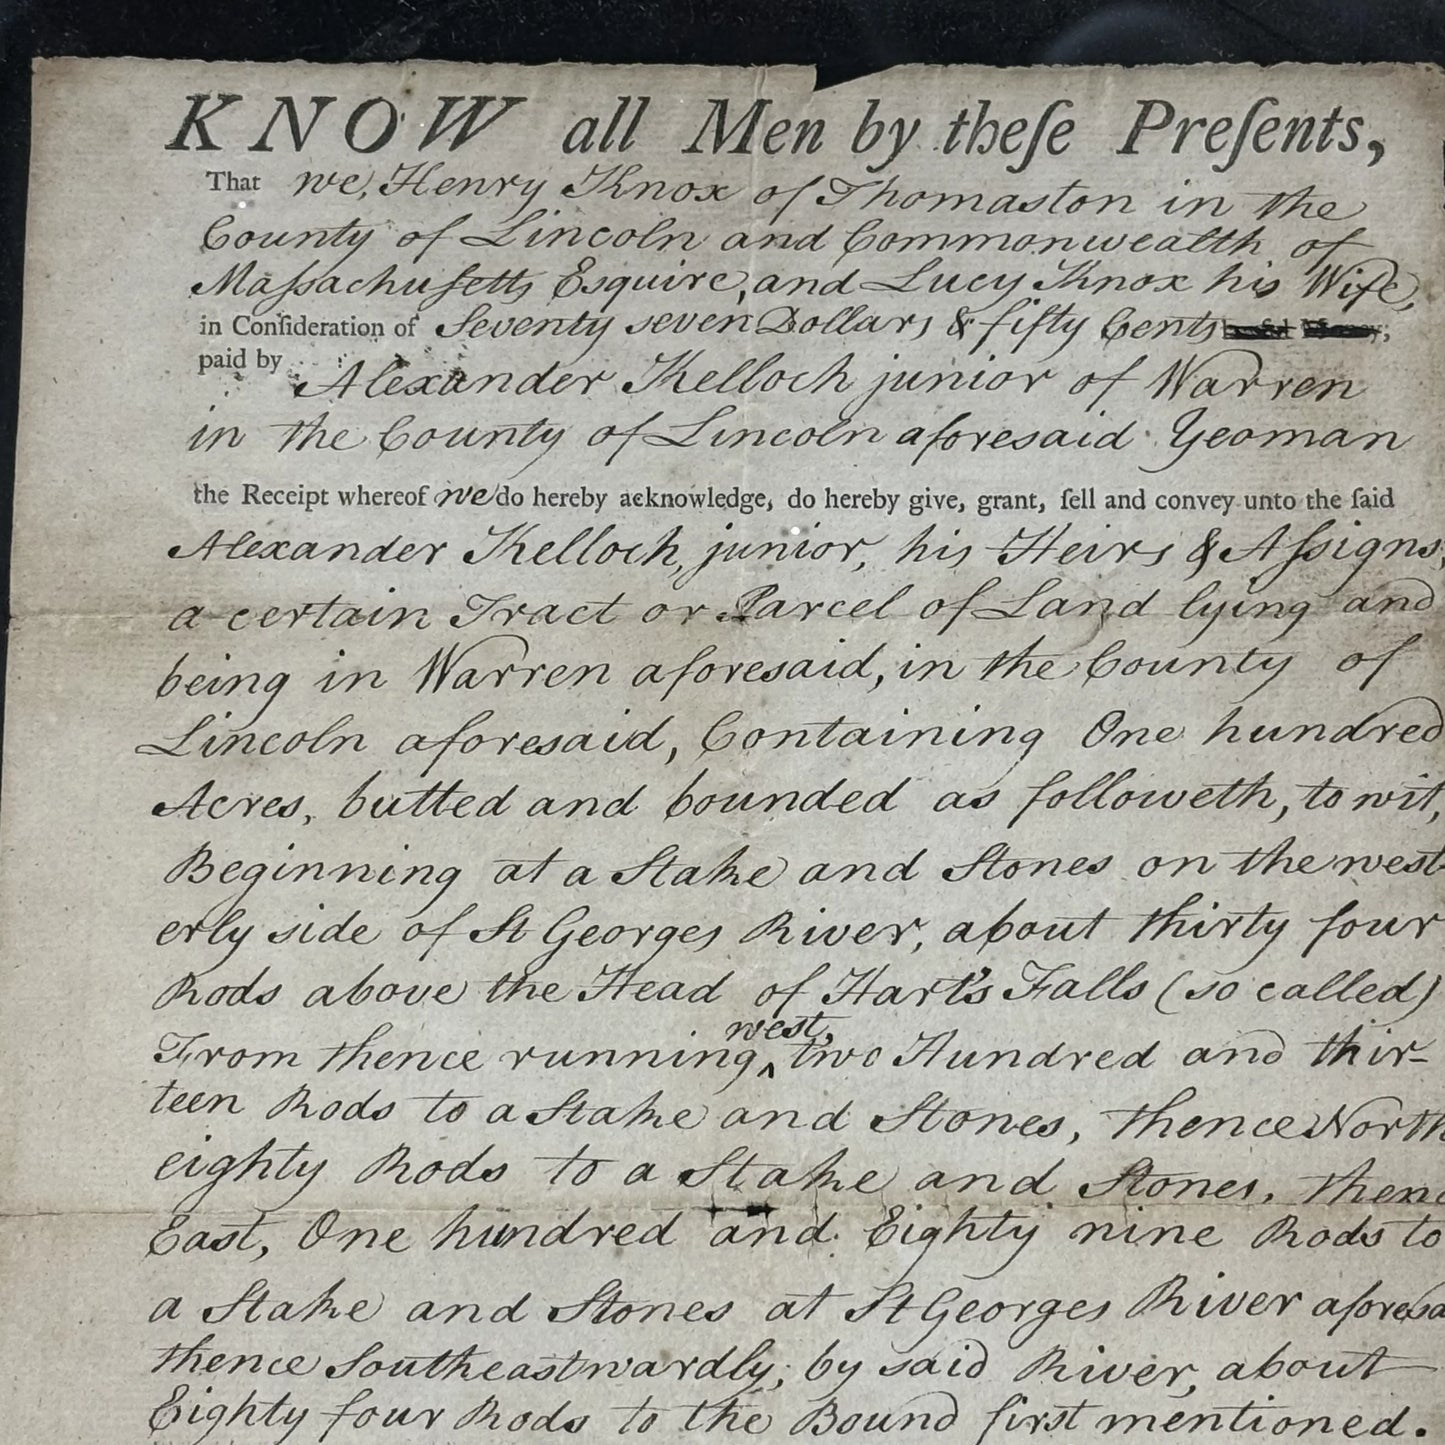 KNOW all Men by theſe Preſents,
That we, Henry Knox of Thomaston in the
County of Lincoln and Commonwealth of
Maſsachuſetts Esquire, and Lucy Knox his Wife,
in Conſideration of Seventy seven Dollars & fifty Cents
paid by Alexander Kelloch junior of Warren
in the County of Lincoln aforesaid Yeoman
the Receipt whereof we do hereby acknowledge, do hereby give, grant, ſell and convey unto the ſaid
Alexander Kelloch, junior, his Heirs & Aſsigns,
a certain Tract or Parcel of Land lying and
being in Warren aforesaid, in the County of
Lincoln aforesaid, Containing One hundred
Acres, butted and bounded as followeth, to wit,
Beginning at a Stake and Stones on the west
erly side of St Georges River, about thirty four
Rods above the Head of Hart's Falls (so called)
From thence running west, two Hundred and thir-
teen Rods to a Stake and Stones, thence North
eighty Rods to a Stake and Stones, thenc
East, One hundred and Eighty nine Rods to
a Stake and Stones at St Georges River aforesa
thence Southeastwardly, by said River, about
Eighty four Rods to the Bound first mentioned.